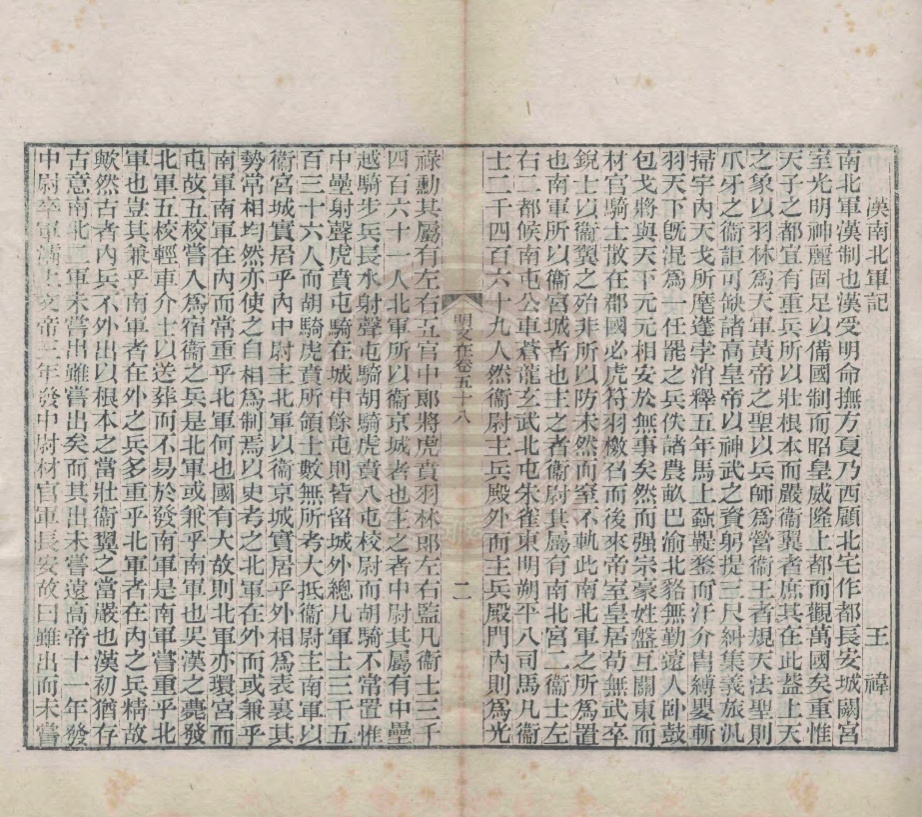 漢南北軍記
王禕
南北軍漢制也漢受明命撫方夏乃西顧北宅作都長安城闕宮
室光明神麗固足以備國制而昭皇威隆上都而觀萬國矣重惟
天子之都宜有重兵所以壯根本而嚴衞翼者庶其在此葢上天
之象以羽林為天軍黃帝之聖以兵師為營衞王者規天法聖則
爪牙之衞詎可缺諸高皇帝以神武之資躬提三尺糾集義旅汎
掃宇內天戈所麾蓬孛消釋五年馬上鍪而汗介胄縛嬰斬
羽天下旣混為一任罷之兵佚諸農畝巴渝北貉無勤遠人卧鼓
包戈將與天下元元相安於無事矣然而强宗豪姓盤互關東而
材官騎士散在郡國必虎符羽檄召而後來帝室皇居苟無武卒
銳士以衞翼之殆非所以防未然而窒不軌此南北軍之所為置
也南軍所以衞宮城者也主之者衞尉其屬有南北宮二衞士左
右二都候南屯公車蒼龍玄武北屯朱雀東明朔平八司馬凡衞
士二千四百六十九人然衞尉主兵殿外而主兵殿門內則為光
明文在卷五十八
二
祿勳其屬有左右五官中郎將虎賁羽林郎左右監凡衞士三千
四百六十一人北軍所以衞京城者也主之者中尉其屬有中壘
越騎步兵長水射聲屯騎胡騎虎賁八屯校尉而胡騎不常置惟
中壘射聲虎賁屯騎在城中餘屯則皆留城外總凡軍士三千五
百三十六人而胡騎虎賁所領士數無所考大抵衞尉主南軍以
衞宮城實居乎內中尉主北軍以衞京城實居乎外相為表裏其
勢常相均然亦使之自相為制焉以史考之北軍在外而或兼乎
南軍南軍在內而常重乎北軍何也國有大故則北軍亦環宮而
屯故五校嘗入為宿衞之兵是北軍或兼乎南軍也吳漢之薨發
北軍五校輕車介士以送葬而不易於發南軍是南軍嘗重乎北
軍也豈其兼乎南軍者在外之兵多重乎北軍者在內之兵精故
歟然古者內兵不外出以根本之當壯衞翼之當嚴也漢初猶存
古意南北二軍未嘗出雖嘗出矣而其出未嘗遠高帝十一年發
中尉卒軍灞上文帝三年發中尉材官軍長安故曰雖出而未嘗